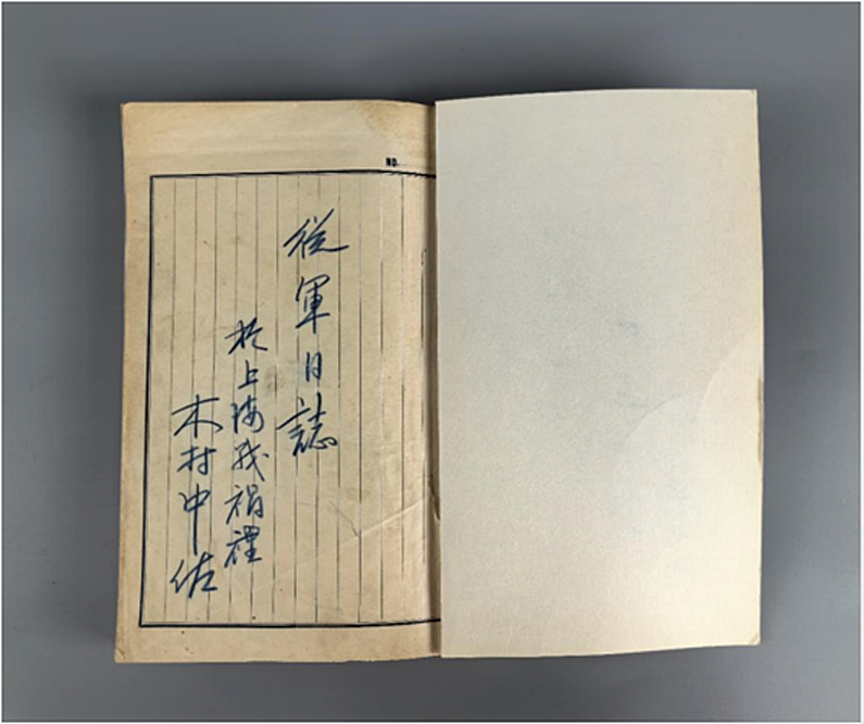 従軍日誌
於上海戦禍裡
木村中佐
NO.